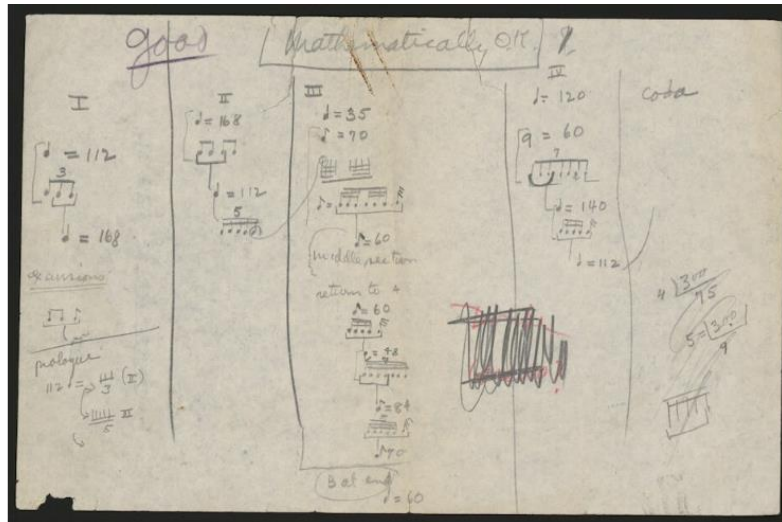 good
Mathematically O.K.
I
♩ = 112
3
♩ = 168
excursions
prologue
112 =
3 (I)
5 II
II
♩ = 168
♩ = 112
5
III
♩ = 35
♪ = 70
♪ = 60
middle section
return to
♪ = 60
♪ = 48
♪ = 84
♪ 70
B at end
♩ = 60
IV
♩ = 120
♩ = 60
7
♩ = 140
♩ = 112
coda
4 ) 300
75
5 = 300